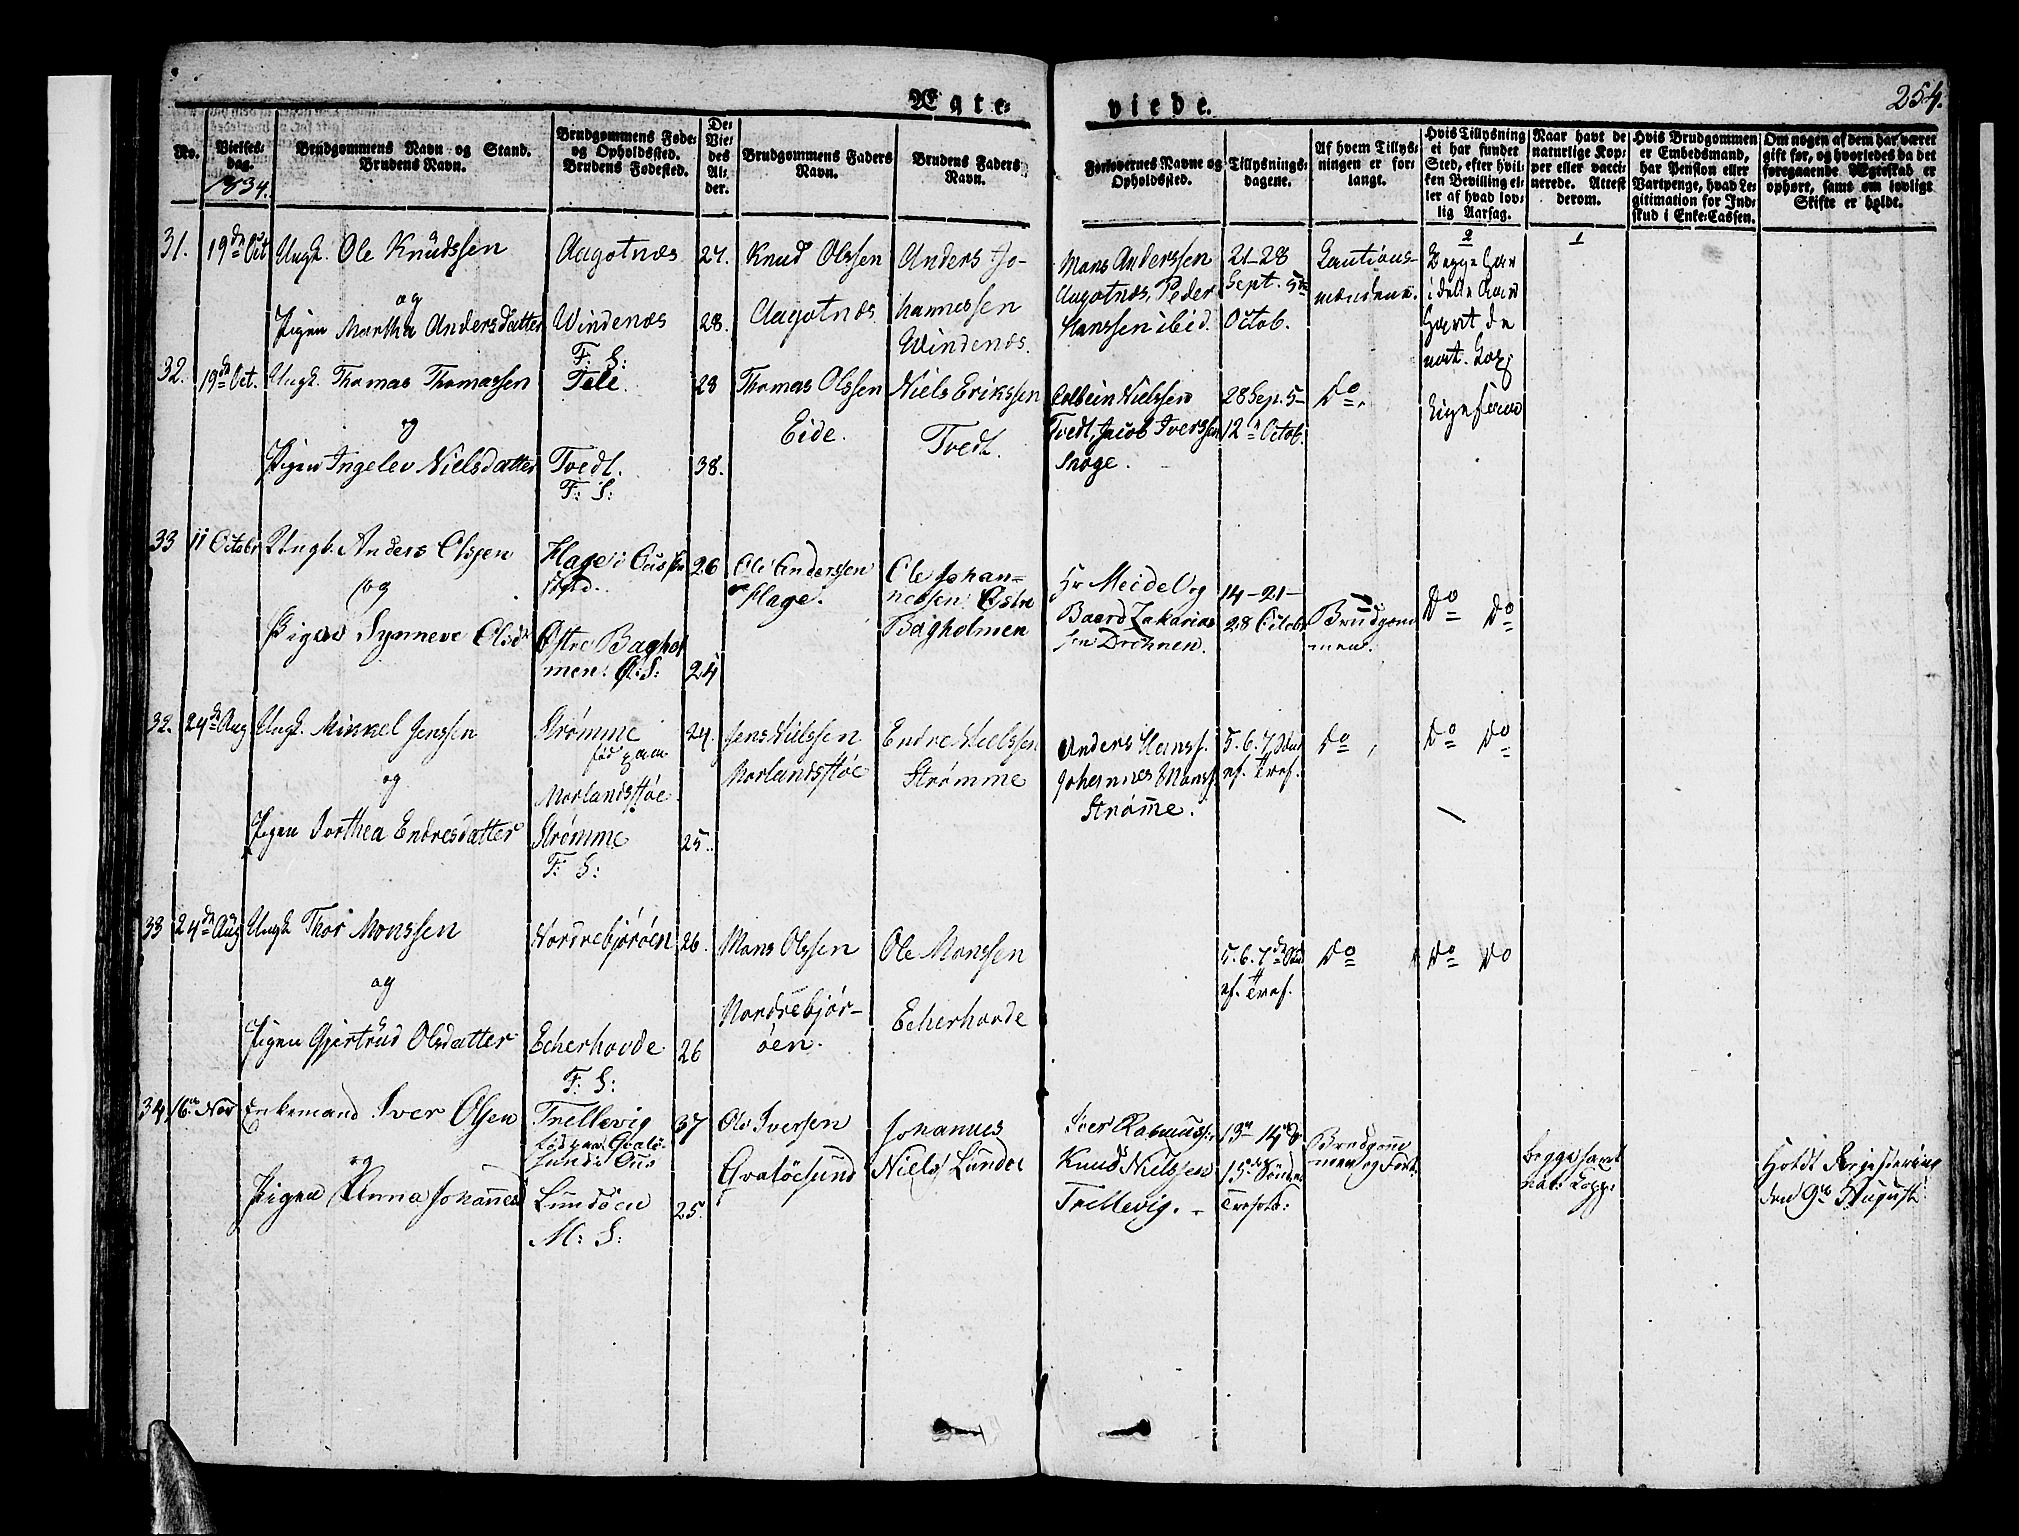 Ægte-
viede.
254.
No.
Vielses-
dag.
1834.
Brudgommens Navn og Stand.
Brudens Navn.
Brudgommens Føde-
og Opholdssted.
Brudens Fødested.
De
Vie-
des
Al-
der.
Brudgommens Faders
Navn.
Brudens Faders
Navn.
Forlovernes Navne og
Opholdssted.
Tillysnings-
dagene.
Af hvem Tillys-
ningen er for-
langt.
Hvis Tillysning
ei har fundet
Sted, efter hvil-
ken Bevilling el-
ler af hvad lov-
lig Aarsag.
Naar havt de
naturlige Kop-
per eller vacci-
nerede. Attest
derom.
Hvis Brudgommen
er Embedsmand,
har Pension eller
Vartpenge, hvad Le-
gitimation for Ind-
skud i Enke-Cassen.
Om nogen af dem har været
gift før, og hvorledes da det
foregaaende Ægteskab er
ophørt, samt om lovligt
Skifte er holdt.
31.
19de Oct
Ungk. Ole Knudssen
og
Pigen Martha Andersdatter
Aagotnæs
Windenæs
F: S:
27.
28.
Knud Olssen
Aagotnæs
Anders Jo-
hannessen
Windenæs.
Mons Anderssen
Aagotnæs, Peder
Hanssen ibid.
21-28
Sept. 5te
Octob.
Cautions-
mændene.
2
Begge har
1
32.
19de Oct.
Ungk. Thomas Thomassen
og
Pigen Ingelev Nielsdatter
Tvedt.
F: S:
28
38.
Thomas Olssen
Eide.
Niels Erikssen
Tvedt.
Colbein Nielssen
Tvedt, Jacob Iverssen
Snøge.
28 Sep. 5-
12te Octob.
Do
Ligesaa
33
11 Octobr
Ungk. Anders Olssen
og
Pigen Synneve Olsd.
Østre Baghol
men: Ø: S:
26
24
Ole Anderssen
Flage.
Ole Johan-
nessen Østre
Bagholmen
Hr Meidel og
Baard Zakarias
sen Drønnen.
14-21-
28 Octobr
Brudgom
men.
Do Do
32.
24de Aug
Ungk. Mikkel Jenssen
og
Pigen Dorthea Endresdatter
Strømme
Morlandsstøe
Strømme
F: S:
24.
25.
Jens Nielssen
Morlandsstøe
Endre Nielssen
Strømme
Anders Hanss.
Johannes Monss.
Strømme.
5. 6. 7
ef. Tref.
Do
Do Do
33
24de Aug
Ungk Thor Monssen
og
Pigen Gjertrud Olsdatter
Nordrebjørøen
Echerhovde
F: S:
26.
26
Mons Olssen
Nordrebjør-
øen.
Ole Monssen
Echerhovde
5. 6. 7de
ef. Tref.
Do
Do Do
34
16de Nov
Enkemand Iver Olsen
og
Pigen Anna Johannesd
Trellevig
Lundøen
M: S:
37
25.
Ole Iversen
Qvaløesund
Johannes
Niels Lundøe
Iver Rasmuss:
Knud Nielssen
Trellevig.
13de 14de &
15de Sønd
Trefold:
Brudgom
men og Forl.
begge havt
nat: Kopp:
Holdt Registering
den 9de August